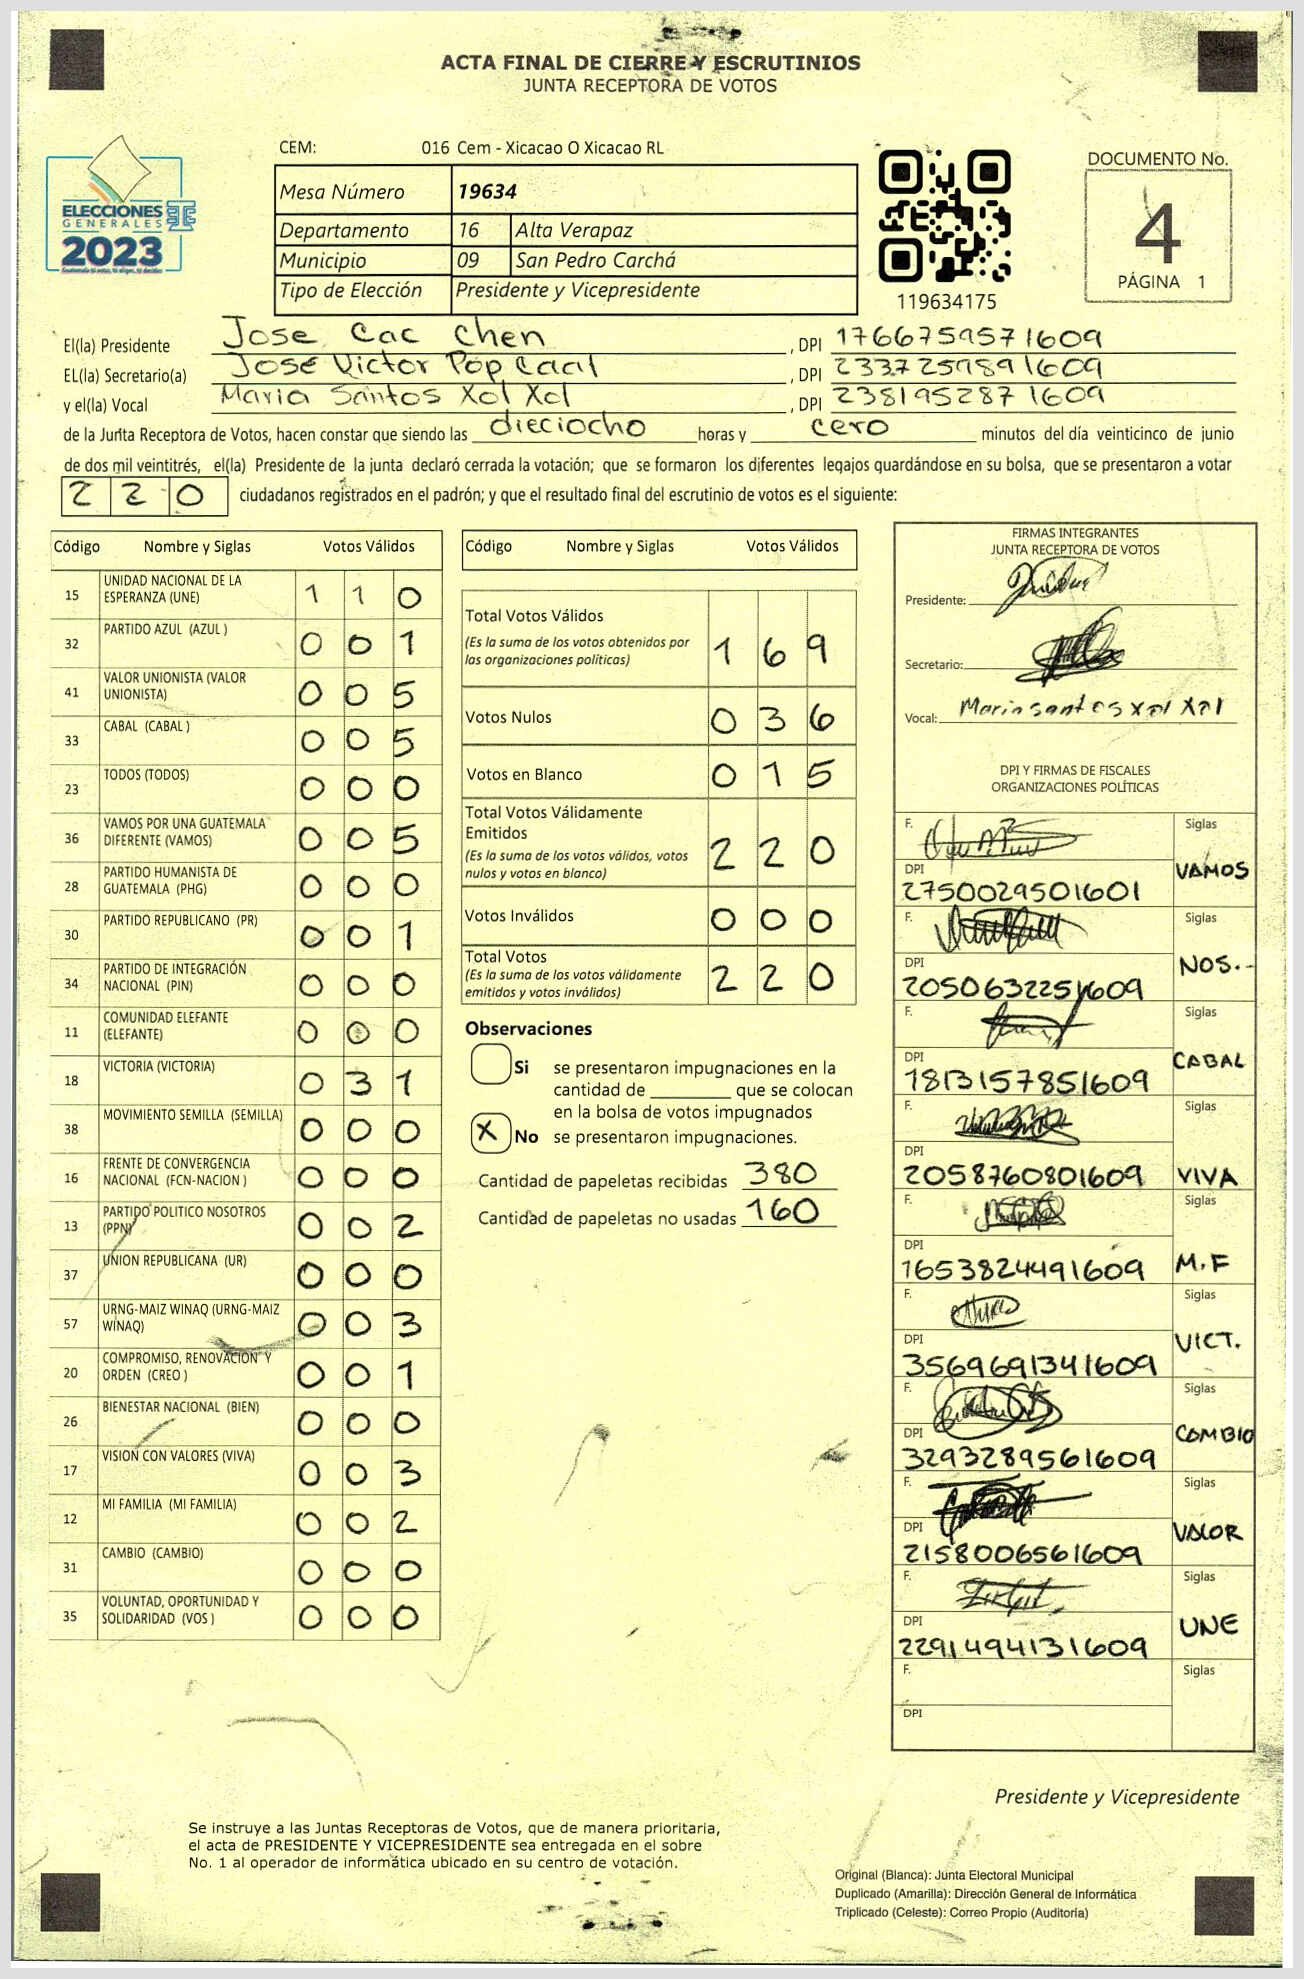 ACTA FINAL DE CIERRE Y ESCRUTINIOS
JUNTA RECEPTORA DE VOTOS
ELECCIONES
GENERALES
2023
CEM: 016 Cem - Xicacao O Xicacao RL
Mesa Número 19634
Departamento 16 Alta Verapaz
Municipio 09 San Pedro Carchá
Tipo de Elección Presidente y Vicepresidente
119634175
DOCUMENTO No.
4
PÁGINA 1
El(la) Presidente Jose Cac Chen , DPI 1766759571609
EL(la) Secretario(a) Jose Victor Pop Caal , DPI 2337259891609
y el(la) Vocal Maria Santos Xol Xol , DPI 2381952871609
de la Junta Receptora de Votos, hacen constar que siendo las dieciocho horas y cero minutos del día veinticinco de junio
de dos mil veintitrés, el(la) Presidente de la junta declaró cerrada la votación; que se formaron los diferentes legajos guardándose en su bolsa, que se presentaron a votar
220 ciudadanos registrados en el padrón; y que el resultado final del escrutinio de votos es el siguiente:
Código Nombre y Siglas Votos Válidos
15 UNIDAD NACIONAL DE LA ESPERANZA (UNE) 1 1 0
32 PARTIDO AZUL (AZUL ) 0 0 1
41 VALOR UNIONISTA (VALOR UNIONISTA) 0 0 5
33 CABAL (CABAL ) 0 0 5
23 TODOS (TODOS) 0 0 0
36 VAMOS POR UNA GUATEMALA DIFERENTE (VAMOS) 0 0 5
28 PARTIDO HUMANISTA DE GUATEMALA (PHG) 0 0 0
30 PARTIDO REPUBLICANO (PR) 0 0 1
34 PARTIDO DE INTEGRACIÓN NACIONAL (PIN) 0 0 0
11 COMUNIDAD ELEFANTE (ELEFANTE) 0 0 0
18 VICTORIA (VICTORIA) 0 3 1
38 MOVIMIENTO SEMILLA (SEMILLA) 0 0 0
16 FRENTE DE CONVERGENCIA NACIONAL (FCN-NACION ) 0 0 0
13 PARTIDO POLITICO NOSOTROS (PPN) 0 0 2
37 UNION REPUBLICANA (UR) 0 0 0
57 URNG-MAIZ WINAQ (URNG-MAIZ WINAQ) 0 0 3
20 COMPROMISO, RENOVACION Y ORDEN (CREO ) 0 0 1
26 BIENESTAR NACIONAL (BIEN) 0 0 0
17 VISION CON VALORES (VIVA) 0 0 3
12 MI FAMILIA (MI FAMILIA) 0 0 2
31 CAMBIO (CAMBIO) 0 0 0
35 VOLUNTAD, OPORTUNIDAD Y SOLIDARIDAD (VOS ) 0 0 0
Código Nombre y Siglas Votos Válidos
Total Votos Válidos 1 6 9
(Es la suma de los votos obtenidos por
las organizaciones políticas)
Votos Nulos 0 3 6
Votos en Blanco 0 1 5
Total Votos Válidamente
Emitidos 2 2 0
(Es la suma de los votos válidos, votos
nulos y votos en blanco)
Votos Inválidos 0 0 0
Total Votos 2 2 0
(Es la suma de los votos válidamente
emitidos y votos inválidos)
Observaciones
Si se presentaron impugnaciones en la
cantidad de ________ que se colocan
en la bolsa de votos impugnados
X No se presentaron impugnaciones.
Cantidad de papeletas recibidas 380
Cantidad de papeletas no usadas 160
FIRMAS INTEGRANTES
JUNTA RECEPTORA DE VOTOS
Presidente:
Secretario:
Vocal: Maria santos xol Xol
DPI Y FIRMAS DE FISCALES
ORGANIZACIONES POLÍTICAS
F. Siglas
DPI VAMOS
2750029501601
F. Siglas
DPI NOS.-
2050632251609
F. Siglas
DPI CABAL
1813157851609
F. Siglas
DPI VIVA
2058760801609
F. Siglas
DPI M.F
1653824491609
F. Siglas
DPI VICT.
3569691341609
F. Siglas
DPI CAMBIO
3293289561609
F. Siglas
DPI VALOR
2158006561609
F. Siglas
DPI UNE
2291494131609
F. Siglas
DPI
Presidente y Vicepresidente
Se instruye a las Juntas Receptoras de Votos, que de manera prioritaria,
el acta de PRESIDENTE Y VICEPRESIDENTE sea entregada en el sobre
No. 1 al operador de informática ubicado en su centro de votación.
Original (Blanca): Junta Electoral Municipal
Duplicado (Amarilla): Dirección General de Informática
Triplicado (Celeste): Correo Propio (Auditoría)